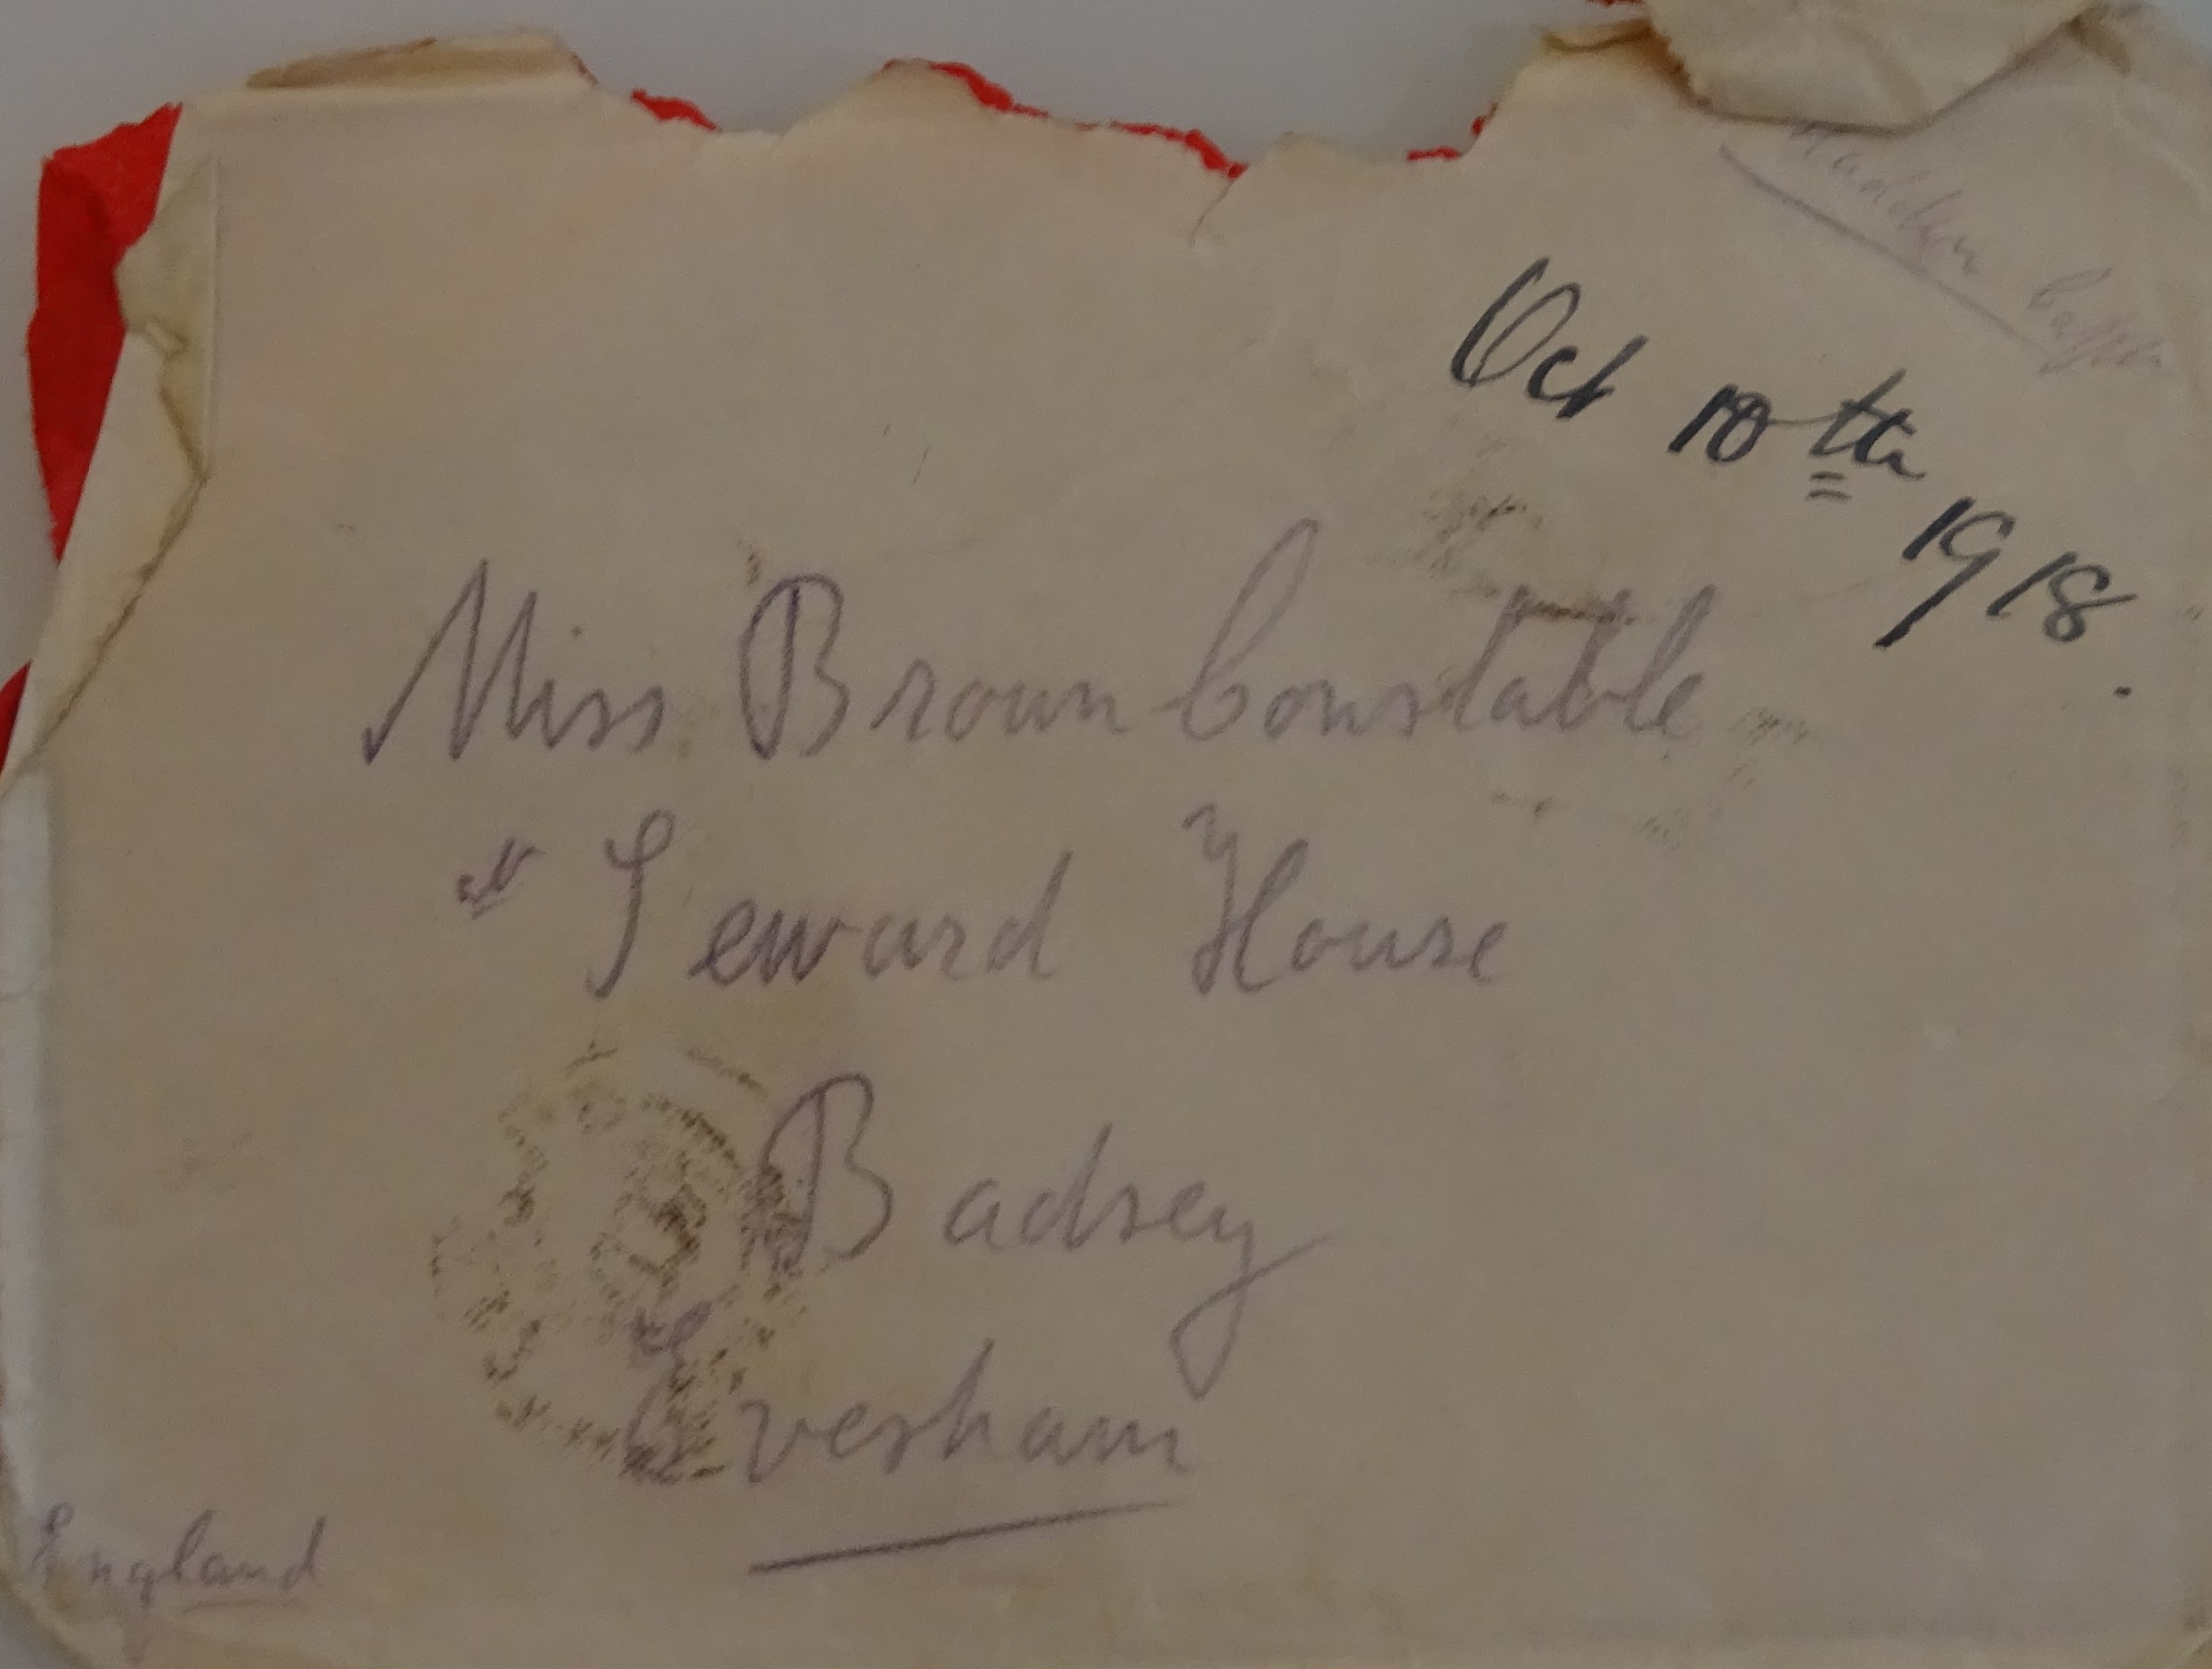 Oct 10th 1918.
Miss Brown Constable
at Seward House
Badsey
Evesham
England